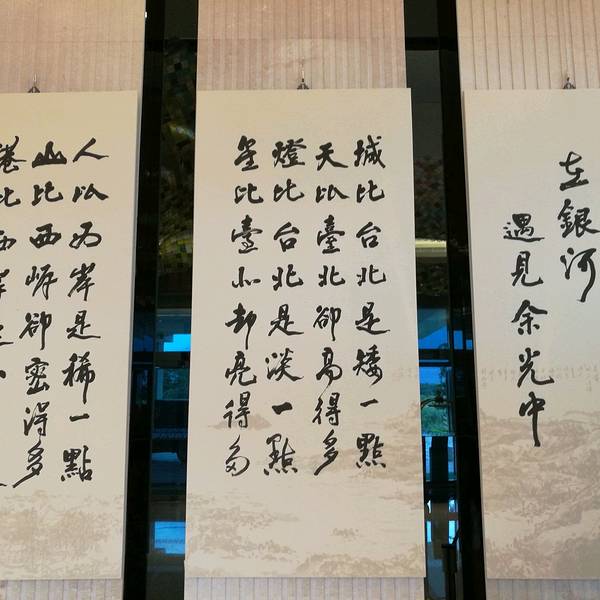 在銀河
遇見余光中
城比台北是矮一點
天比臺北卻高得多
燈比台北是淡一點
星比臺北却亮得多
人比西岸是稀一點
山比西岸卻密得多
港比西岸